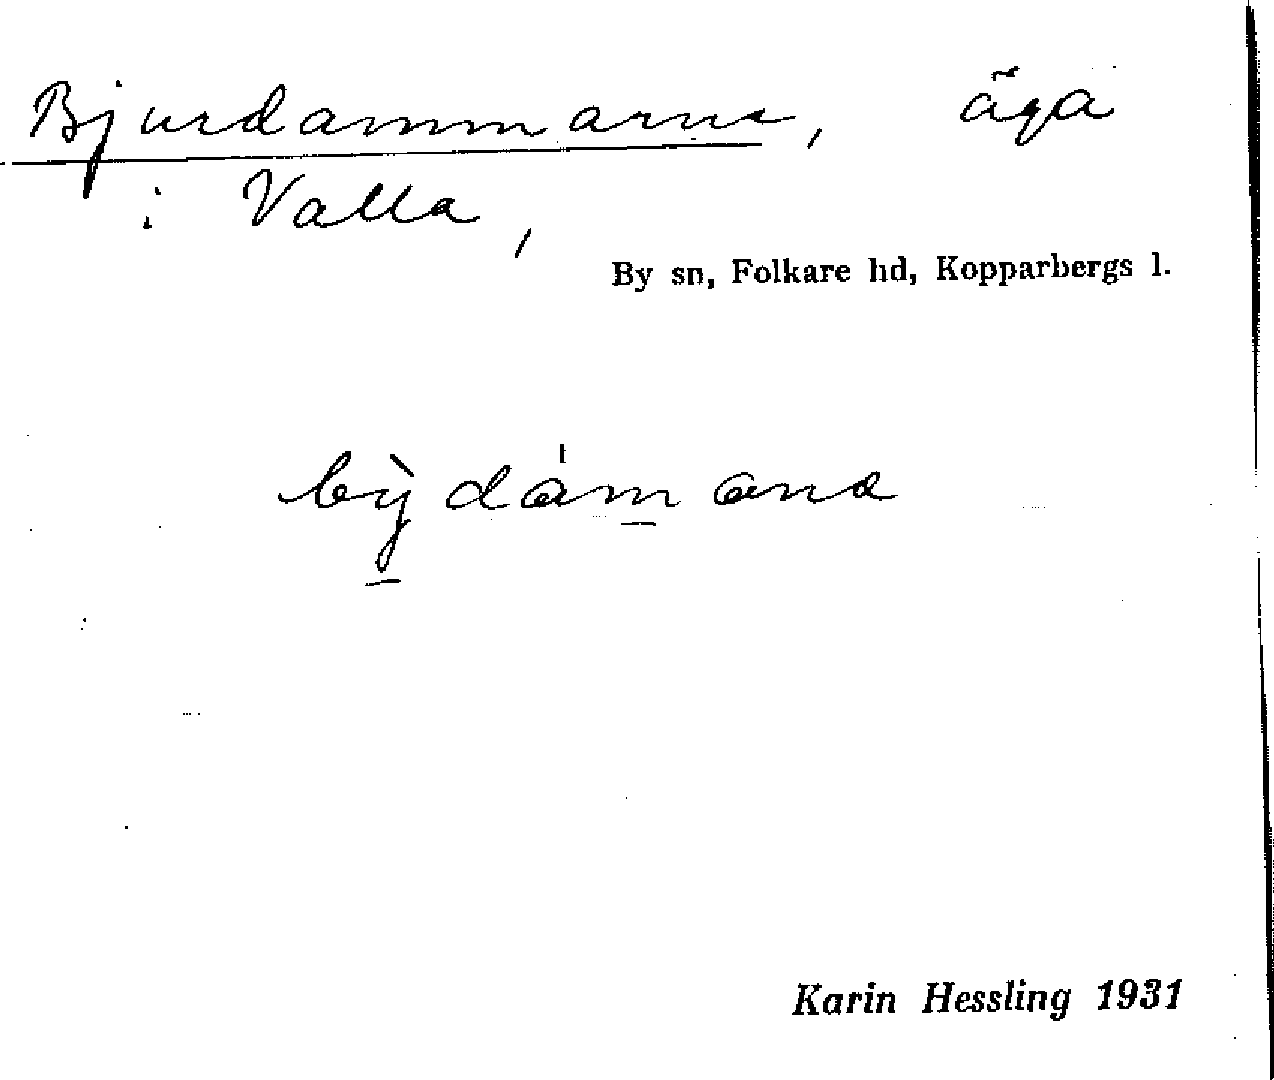 Bjurdammarne, äga
i Valla,
By sn, Folkare hd, Kopparbergs l.
bỳdámana
Karin Hessling 1931